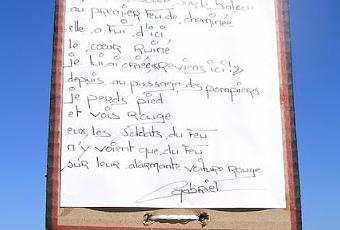 sur le balcon
au premier feu de cheminée
elle a fui d'ici
le cœur ruiné
je lui ai criée, Reviens ici !»
depuis, au passage des pompiers
je perds pied
et vois rouge
eux, les soldats du feu
n'y voient que du feu
sur leur alarmante voiture rouge
Gabriel